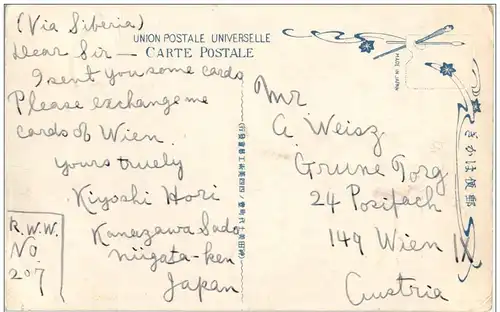 (Via Siberia)
UNION POSTALE UNIVERSELLE
CARTE POSTALE
Dear Sir —
I sent you some cards
Please exchange me
cards of Wien.
yours truely
Kiyoshi Hori
Kanazawa Sado
Niigata-ken
Japan
R.W.W.
No.
207
Mr.
A. Weisz
Grune Torg
24 Posifach
149 Wien IX
Austria
MADE IN JAPAN
きかは便郵